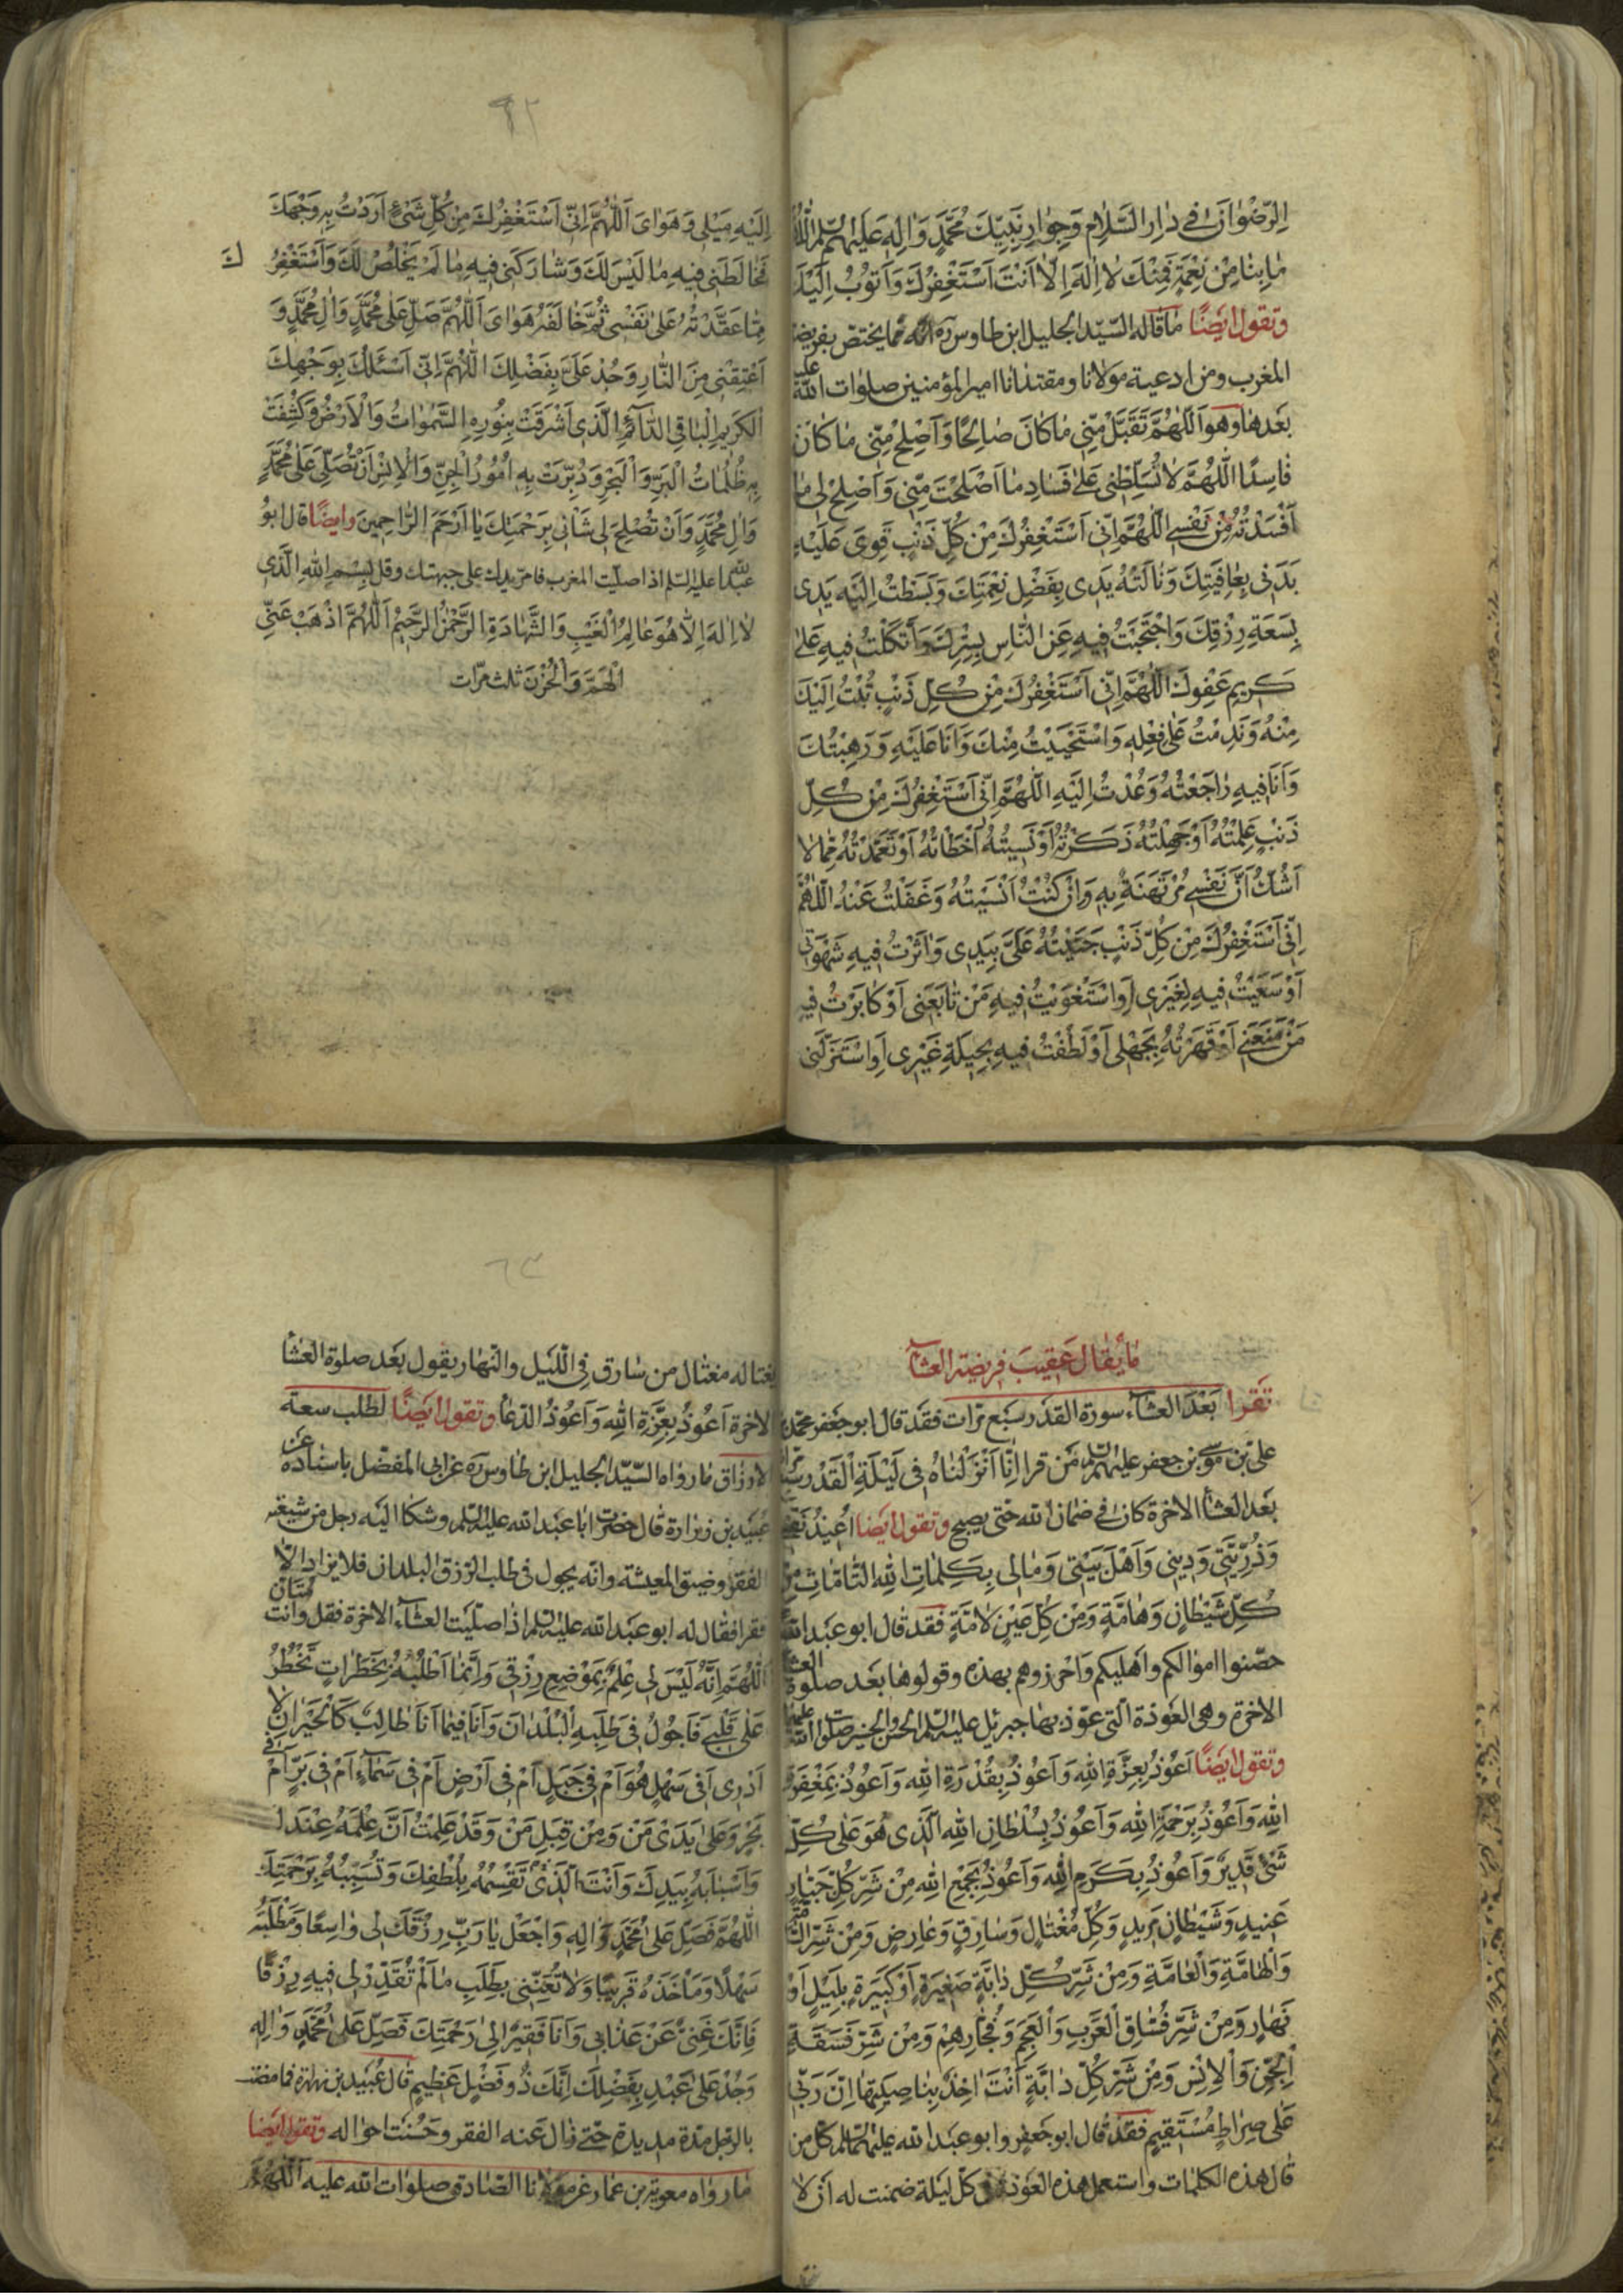 الرِّضْوٰانَ فِي دٰارِ السَّلٰامِ وَجِوٰارِ نَبِيِّكَ مُحَمَّدٍ وَاٰلِهِ عَلَيْهِمُ السَّلَمُ اَللّٰهُمَّ
مٰا بِنٰا مِنْ نِعْمَةٍ فَمِنْكَ لٰا اِلٰهَ اِلّٰا اَنْتَ اَسْتَغْفِرُكَ وَاَتُوبُ اِلَيْكَ
وتقول ايضًا مٰا قاله السّيّد الجليل ابن طاوس ره ممّا يختصّ بفريضة
المغرب ومن ادعية مولانا ومقتدانا امير المؤمنين صلوات اللّه عليه
بعدها وهو اَللّٰهُمَّ تَقَبَّلْ مِنّى مٰا كٰانَ صٰالِحًا وَاَصْلِحْ مِنّى مٰا كٰانَ
فٰاسِدًا اَللّٰهُمَّ لٰا تُسَلِّطْنى عَلىٰ فَسٰادِ مٰا اَصْلَحْتَ مِنّى وَاَصْلِحْ لى مٰا
اَفْسَدْتُهُ مِنْ نَفْسى اَللّٰهُمَّ اِنّى اَسْتَغْفِرُكَ مِنْ كُلِّ ذَنْبٍ قَوِىَ عَلَيْهِ
بَدَنى بِعٰافِيَتِكَ وَنٰالَتْهُ يَدى بِفَضْلِ نِعْمَتِكَ وَبَسَطْتُ اِلَيْهِ يَدى
بِسَعَةِ رِزْقِكَ وَاحْتَجَبْتُ فيهِ عَنِ النّٰاسِ بِسِتْرِكَ وَاتَّكَلْتُ فيهِ عَلىٰ
كَريمِ عَفْوِكَ اَللّٰهُمَّ اِنّى اَسْتَغْفِرُكَ مِنْ كُلِّ ذَنْبٍ تُبْتُ اِلَيْكَ
مِنْهُ وَنَدِمْتُ عَلىٰ فِعْلِهِ وَاسْتَحْيَيْتُ مِنْكَ وَاَنَا عَلَيْهِ وَرَهِبْتُكَ
وَاَنَا فيهِ رٰاجَعْتُهُ وَعُدْتُ اِلَيْهِ اَللّٰهُمَّ اِنّى اَسْتَغْفِرُكَ مِنْ كُلِّ
ذَنْبٍ عَلِمْتُهُ اَوْ جَهِلْتُهُ ذَكَرْتُهُ اَوْ نَسيتُهُ اَخْطَاْتُهُ اَوْ تَعَمَّدْتُهُ مِمّٰا لٰا
اَشُكُّ اَنَّ نَفْسى مُرْتَهَنَةٌ بِهِ وَاِنْ كُنْتُ اُنْسيتُهُ وَغَفَلْتُ عَنْهُ اَللّٰهُمَّ
اِنّى اَسْتَغْفِرُكَ مِنْ كُلِّ ذَنْبٍ جَنَيْتُهُ عَلَىَّ بِيَدى وَاٰثَرْتُ فيهِ شَهْوَتى
اَوْ سَعَيْتُ فيهِ لِغَيْرى اَوِ اسْتَغْوَيْتُ فيهِ مَنْ تٰابَعَنى اَوْ كٰابَرْتُ فيهِ
مَنْ مَنَعَنى اَوْ قَهَرْتُهُ بِجَهْلى اَوْ لَطُفْتُ فيهِ بِحيلَةِ غَيْرى اَوِ اسْتَزَلَّنى
٩٢
اِلَيْهِ مَيْلى وَهَوٰاىَ اَللّٰهُمَّ اِنّى اَسْتَغْفِرُكَ مِنْ كُلِّ شَىْءٍ اَرَدْتُ بِهِ وَجْهَكَ
فَخٰالَطَنى فيهِ مٰا لَيْسَ لَكَ وَشٰارَكَنى فيهِ مٰا لَمْ يَخْلُصْ لَكَ وَاَسْتَغْفِرُكَ
مِمّٰا عَقَدْتُهُ عَلىٰ نَفْسى ثُمَّ خٰالَفَهُ هَوٰاىَ اَللّٰهُمَّ صَلِّ عَلىٰ مُحَمَّدٍ وَاٰلِ مُحَمَّدٍ وَ
اَعْتِقْنى مِنَ النّٰارِ وَجُدْ عَلَىَّ بِفَضْلِكَ اَللّٰهُمَّ اِنّى اَسْئَلُكَ بِوَجْهِكَ
الْكَريمِ الْبٰاقِى الدّٰائِمِ الَّذى اَشْرَقَتْ بِنُورِهِ السَّمٰوٰاتُ وَالْاَرْضُ وَكُشِفَتْ
بِهِ ظُلُمٰاتُ الْبَرِّ وَالْبَحْرِ وَدُبِّرَتْ بِهِ اُمُورُ الْجِنِّ وَالْاِنْسِ اَنْ تُصَلِّىَ عَلىٰ مُحَمَّدٍ
وَاٰلِ مُحَمَّدٍ وَاَنْ تُصْلِحَ لى شَاْنى بِرَحْمَتِكَ يٰا اَرْحَمَ الرّٰاحِمينَ وايضًا قال ابو
عبد اللّه عليه السّلم اذا صلّيت المغرب فامرّ يدك على جبهتك وقل بِسْمِ اللّٰهِ الَّذى
لٰا اِلٰهَ اِلّٰا هُوَ عٰالِمُ الْغَيْبِ وَالشَّهٰادَةِ الرَّحْمٰنُ الرَّحيمُ اَللّٰهُمَّ اَذْهِبْ عَنّى
الْهَمَّ وَالْحُزْنَ ثلث مرّات
مٰا يُقٰال عَقيبَ فريضة العشآء
تقرا بَعْدَ العشآء سورة القدر سبع مرّات فقد قال ابو جعفر محمّد بن
علىّ بن موسى بن جعفر عليهم السّلم من قرا اِنّٰا اَنْزَلْنٰاهُ فى لَيْلَةِ الْقَدْرِ سبع مرّات
بعد العشآء الاخرة كان فى ضمان اللّه حتّى يصبح وتقول ايضا اُعيذُ نَفْسى
وَذُرِّيَّتى وَدينى وَاَهْلَ بَيْتى وَمٰالى بِكَلِمٰاتِ اللّٰهِ التّٰامّٰاتِ مِنْ
كُلِّ شَيْطٰانٍ وَهٰامَّةٍ وَمِنْ كُلِّ عَيْنٍ لٰامَّةٍ فقد قال ابو عبد اللّه
حصّنوا اموالكم واهليكم واحرزوهم بهذه وقولوها بعد صلوة العشآء
الاخرة وهى العُوذة الّتى عوّذ بها جبرئيل عليه السّلم الحسن والحسين صلوات اللّه عليهما
وتقول ايضًا اَعُوذُ بِعِزَّةِ اللّٰهِ وَاَعُوذُ بِقُدْرَةِ اللّٰهِ وَاَعُوذُ بِمَغْفِرَةِ
اللّٰهِ وَاَعُوذُ بِرَحْمَةِ اللّٰهِ وَاَعُوذُ بِسُلْطٰانِ اللّٰهِ الَّذى هُوَ عَلىٰ كُلِّ
شَىْءٍ قَديرٌ وَاَعُوذُ بِكَرَمِ اللّٰهِ وَاَعُوذُ بِجَمْعِ اللّٰهِ مِنْ شَرِّ كُلِّ جَبّٰارٍ
عَنيدٍ وَشَيْطٰانٍ مَريدٍ وَكُلِّ مُغْتٰالٍ وَسٰارِقٍ وَعٰارِضٍ وَمِنْ شَرِّ السّٰامَّةِ
وَالْهٰامَّةِ وَالْعٰامَّةِ وَمِنْ شَرِّ كُلِّ دٰابَّةٍ صَغيرَةٍ اَوْ كَبيرَةٍ بِلَيْلٍ اَوْ
نَهٰارٍ وَمِنْ شَرِّ فُسّٰاقِ الْعَرَبِ وَالْعَجَمِ وَفُجّٰارِهِمْ وَمِنْ شَرِّ فَسَقَةِ
الْجِنِّ وَالْاِنْسِ وَمِنْ شَرِّ كُلِّ دٰابَّةٍ اَنْتَ اٰخِذٌ بِنٰاصِيَتِهٰا اِنَّ رَبّى
عَلىٰ صِرٰاطٍ مُسْتَقيمٍ فقد قال ابو جعفر وابو عبد اللّه عليهما السّلم كلّ من
قال هذه الكلمات واستعمل هذه العوذة فى كلّ ليلة ضمنت له ان لا
٦٣
يغتاله مغتال من سٰارق فى اللّيل والنّهار يقول بعد صلوة العشآء
الاخرة اَعُوذُ بِعِزَّةِ اللّٰهِ وَاَعُوذُ الدّعآء وتقول ايضًا لطلب سعة
الارزاق مٰا رواه السّيّد الجليل ابن طاوس ره عن ابى المفضّل باسناده عن
عبيد بن زرارة قال حضرت ابا عبد اللّه عليه السّلم وشكا اليه رجل من شيعته
الفقر وضيق المعيشة وانّه يجول فى طلب الرّزق البلدان فلا يزداد الّا
فقرا فقال له ابو عبد اللّه عليه السّلم اذا صلّيت العشآء الاخرة فقل وانت متأنّ
اَللّٰهُمَّ اِنَّهُ لَيْسَ لى عِلْمٌ بِمَوْضِعِ رِزْقى وَاِنَّمٰا اَطْلُبُهُ بِخَطَرٰاتٍ تَخْطُرُ
عَلىٰ قَلْبى فَاَجُولُ فى طَلَبِهِ الْبُلْدٰانَ وَاَنَا فيمٰا اَنَا طٰالِبٌ كَالْحَيْرٰانِ لٰا
اَدْرى اَفى سَهْلٍ هُوَ اَمْ فى جَبَلٍ اَمْ فى اَرْضٍ اَمْ فى سَمٰآءٍ اَمْ فى بَرٍّ اَمْ فى
بَحْرٍ وَعَلىٰ يَدَىْ مَنْ وَمِنْ قِبَلِ مَنْ وَقَدْ عَلِمْتُ اَنَّ عِلْمَهُ عِنْدَكَ
وَاَسْبٰابَهُ بِيَدِكَ وَاَنْتَ الَّذى تَقْسِمُهُ بِلُطْفِكَ وَتُسَبِّبُهُ بِرَحْمَتِكَ
اَللّٰهُمَّ فَصَلِّ عَلىٰ مُحَمَّدٍ وَاٰلِهِ وَاجْعَلْ يٰا رَبِّ رِزْقَكَ لى وٰاسِعًا وَمَطْلَبَهُ
سَهْلًا وَمَاْخَذَهُ قَريبًا وَلٰا تُعَنِّنى بِطَلَبِ مٰا لَمْ تُقَدِّرْ لى فيهِ رِزْقًا
فَاِنَّكَ غَنِىٌّ عَنْ عَذٰابى وَاَنَا فَقيرٌ اِلىٰ رَحْمَتِكَ فَصَلِّ عَلىٰ مُحَمَّدٍ وَاٰلِهِ
وَجُدْ عَلىٰ عَبْدِكَ بِفَضْلِكَ اِنَّكَ ذُو فَضْلٍ عَظيمٍ قال عبيد بن زرارة فما مضت
بالرّجل مدّة مديدة حتّى زال عنه الفقر وحسنت احواله وتقول ايضا
مٰا رواه معوية بن عمّار عن مولانا الصّادق صلوات اللّه عليه اَللّٰهُمَّ